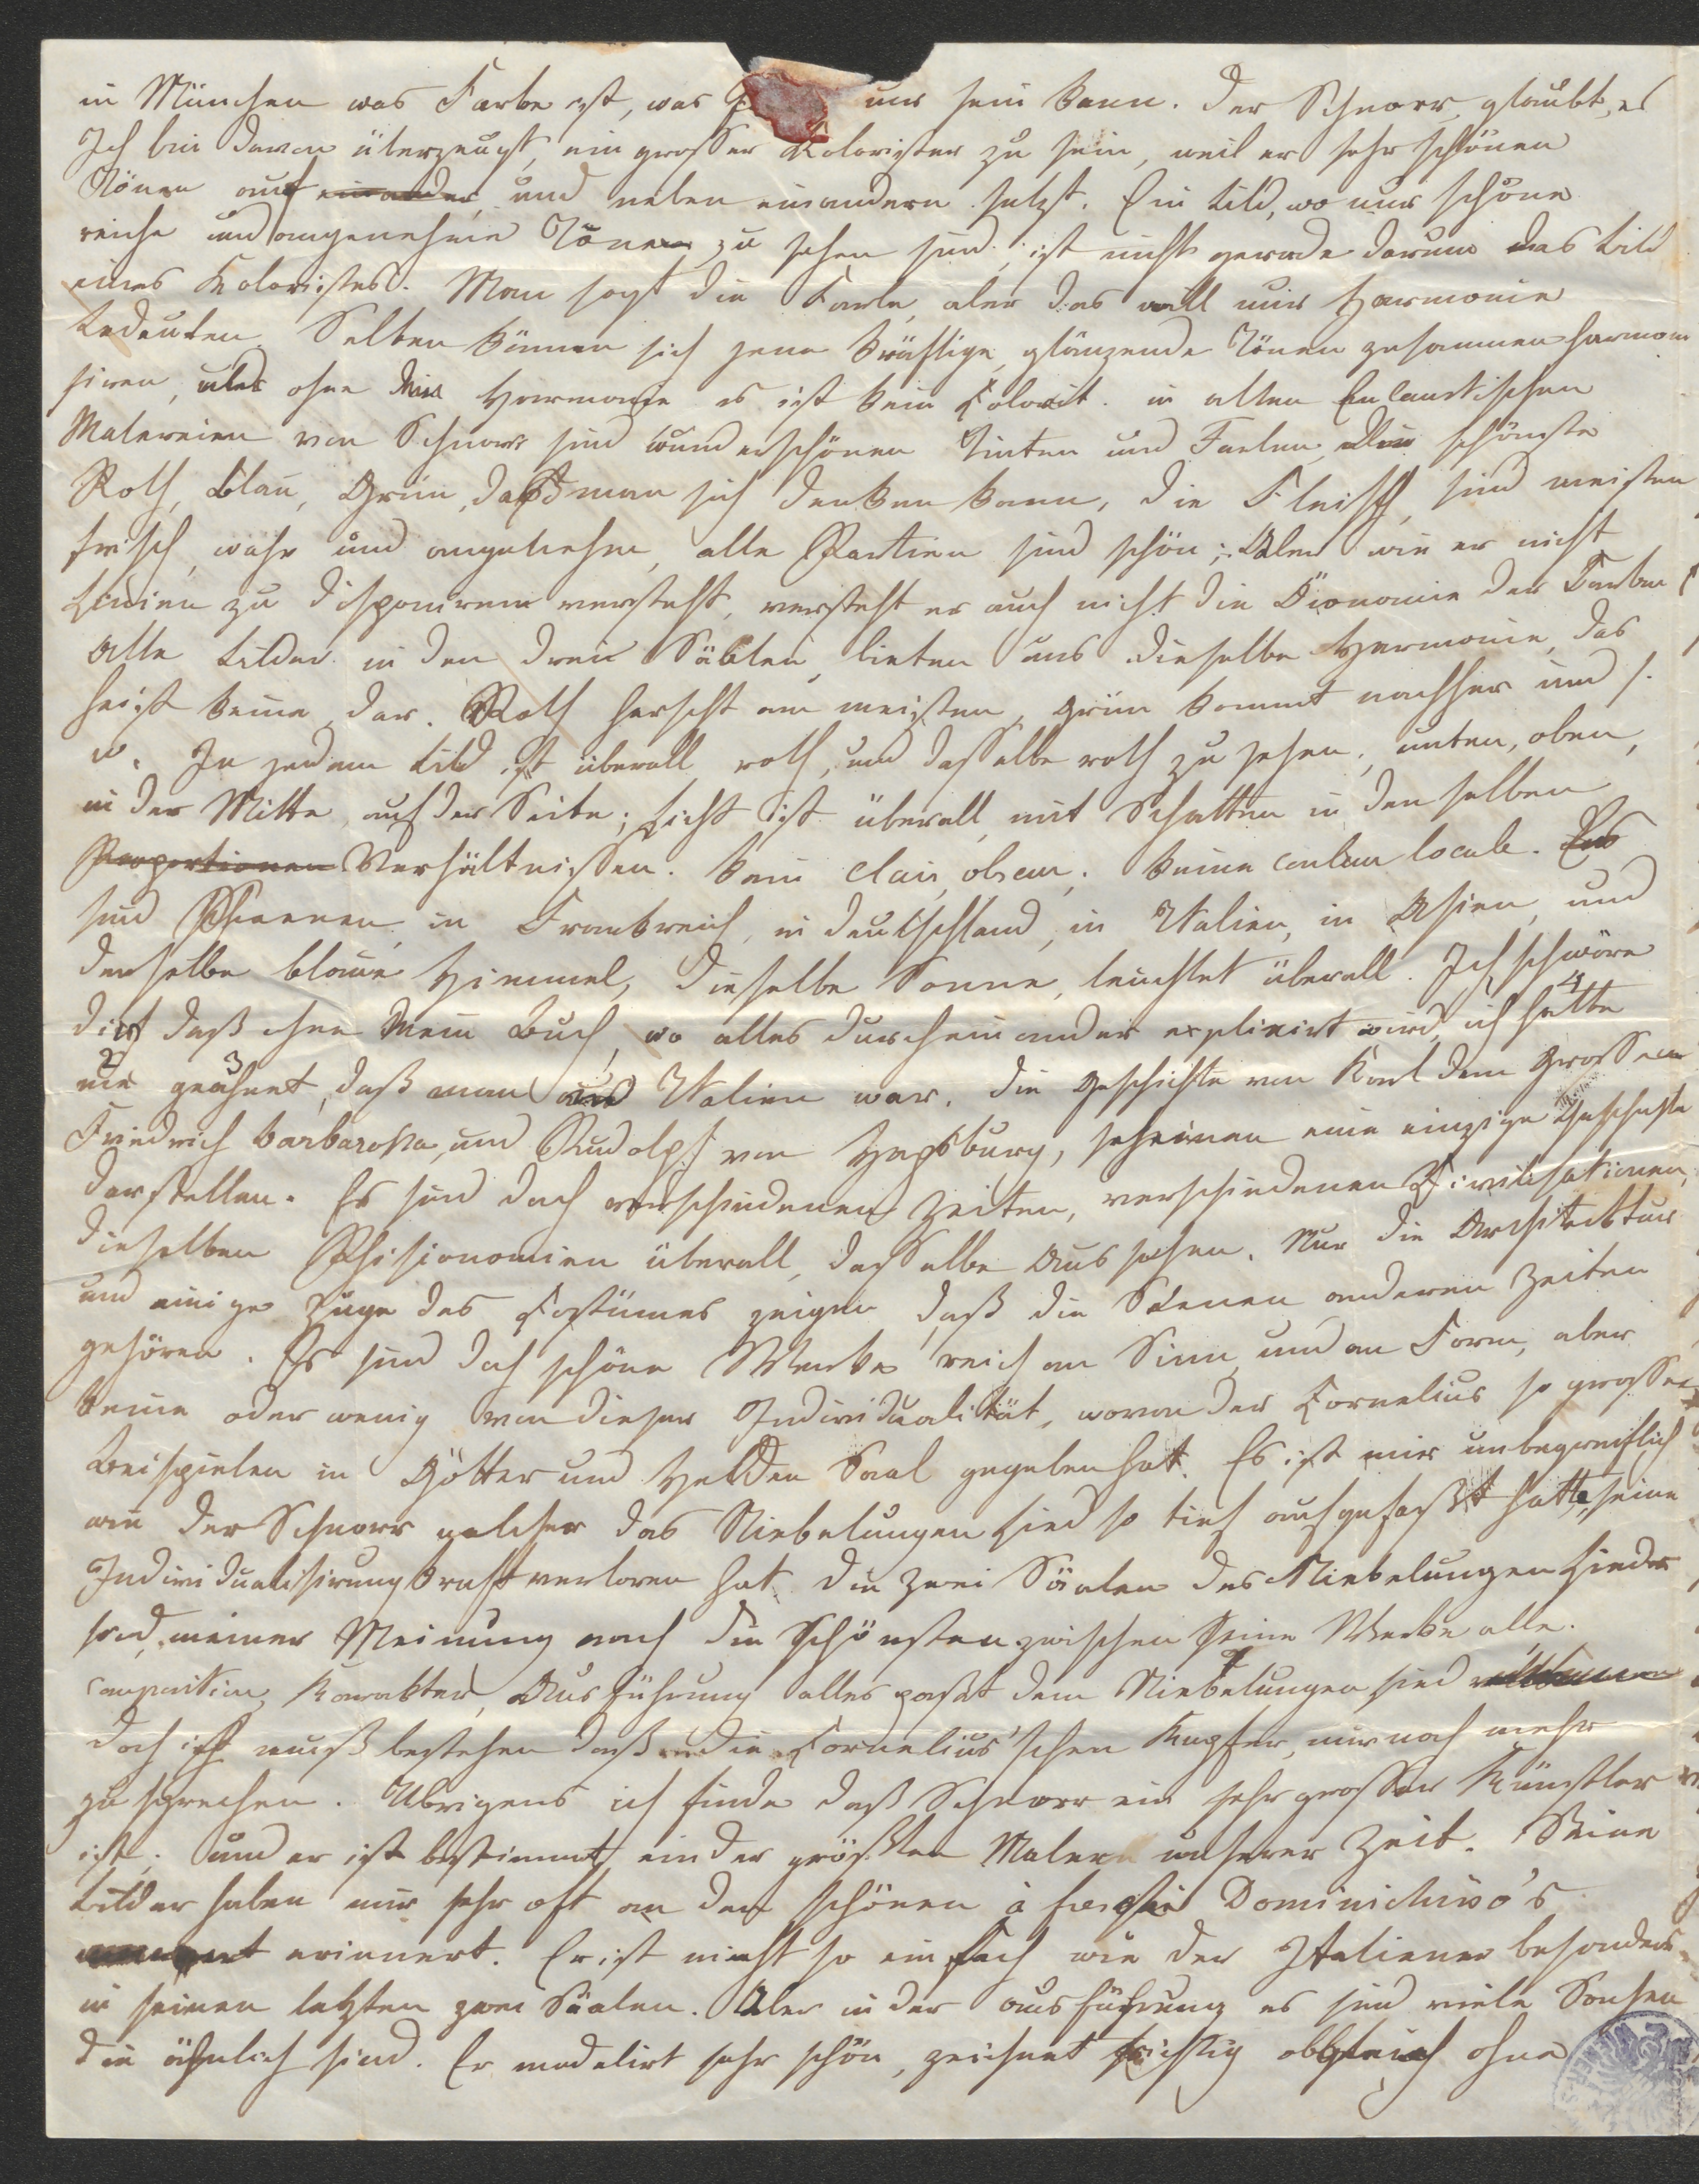 in München was Farbe ist, was nur sein kann. Der Schnorr glaubt, es
Ich bin davon überzeugt, ein grosser Kolorister zu sein, weil er sehr schönen
Tönen auf einander und neben einandern setzt. Ein Bild, wo nur schöne
reiche und angenehme Tönen zu sehen sind, ist nicht gerade darum das Bild
eines Koloristes. Man sagt die Farbe, aber das will nur Harmonie
bedeuten. Selten können sich jene kräftige, glänzende Tönen zusammen harmoni
siren, aber ohne Harmonie es ist kein Colorit. in allen Enkaustischen
Malereien von Schnorr sind wunderschönen Tinten und Farben, die schönste
Roth, Blau, Grün, daß man sich denken kann, die Fleisch sind meisten
frisch, wahr und angenehm, alle Partien sind schön; Aber wie er nicht
Linien zu disponiren versteht, versteht er auch nicht die Öionomie der Farben
Alle Bilder in den drei Sählen, bieten uns dieselbe Harmonie, das
heißt keine, dar. Roth herscht am meisten, grün kommt nachher und s.
w. In jedem Bild ist überall roth, und dasselbe roth zu sehen, unten, oben,
in der Mitte, auf der Seite; Licht ist überall mit Schatten in den selben
Proportionen Verhältnissen. kein clair obscur; keine couleur locale. Es
sind Scenen in Frankreich, in Deutschland, in Italien, in Asien, und
derselbe blaue Himmel, dieselbe Sonne, leuchtet überall. Ich schwöre
dir daß ohne Mein Buch, wo alles durcheinander explicirt wird, ich hätte 4
2 nie 3 geahnet, daß man in Italien war. Die Geschichte von Karl dem Grossen
Friedrich Barbarossa, und Rudolph von Hapsburg, scheinen eine einzige Geschichte
darstellen. Es sind doch verschiedenen Zeiten, verschiedenen Civilisationen,
dieselben Phisionomien überall, dasselbe Aussehen. Nur die Architecktur
und einige Züge des Costümes zeigen daß die Scenen anderen Zeiten
gehören. Es sind doch schöne Werke reich an Sinn, und an Form, aber
keine oder wenig von dieser Individualität, wovon der Cornelius so grosser
Beispielen in Götter und Helden Saal gegeben hat. Es ist mir unbegreiflich
wie der Schnorr welcher das Niebelungen Lied so tief aufgefaßt hatte, seine
Individualisirungskraft verloren hat. Die zwei Säalen des Niebelungen Lieder
sind, meiner Meinung nach die Schönsten zwischen seine Werke alle.
Composition, Karakter, Ausführung alles paßt dem Niebelungen Lied
doch ich muß bestehen daß die Cornelius'schen Kupfer, mir noch mehr
zu sprechen. Ubrigens ich finde daß Schnorr ein sehr grosser Künstler
ist; und er ist bestimmt ein der größten Malern unserer Zeit. Seine
Bilder haben mir sehr oft an den schönen à fresco Dominichino's
erinnert. Er ist nicht so einfach wie der Italiener besonders
in seinen letzten zwei Säalen. Aber in der Ausführung es sind viele Sachen
die ähnlich sind. Er modelirt sehr schön, zeichnet richtig obgleich ohne